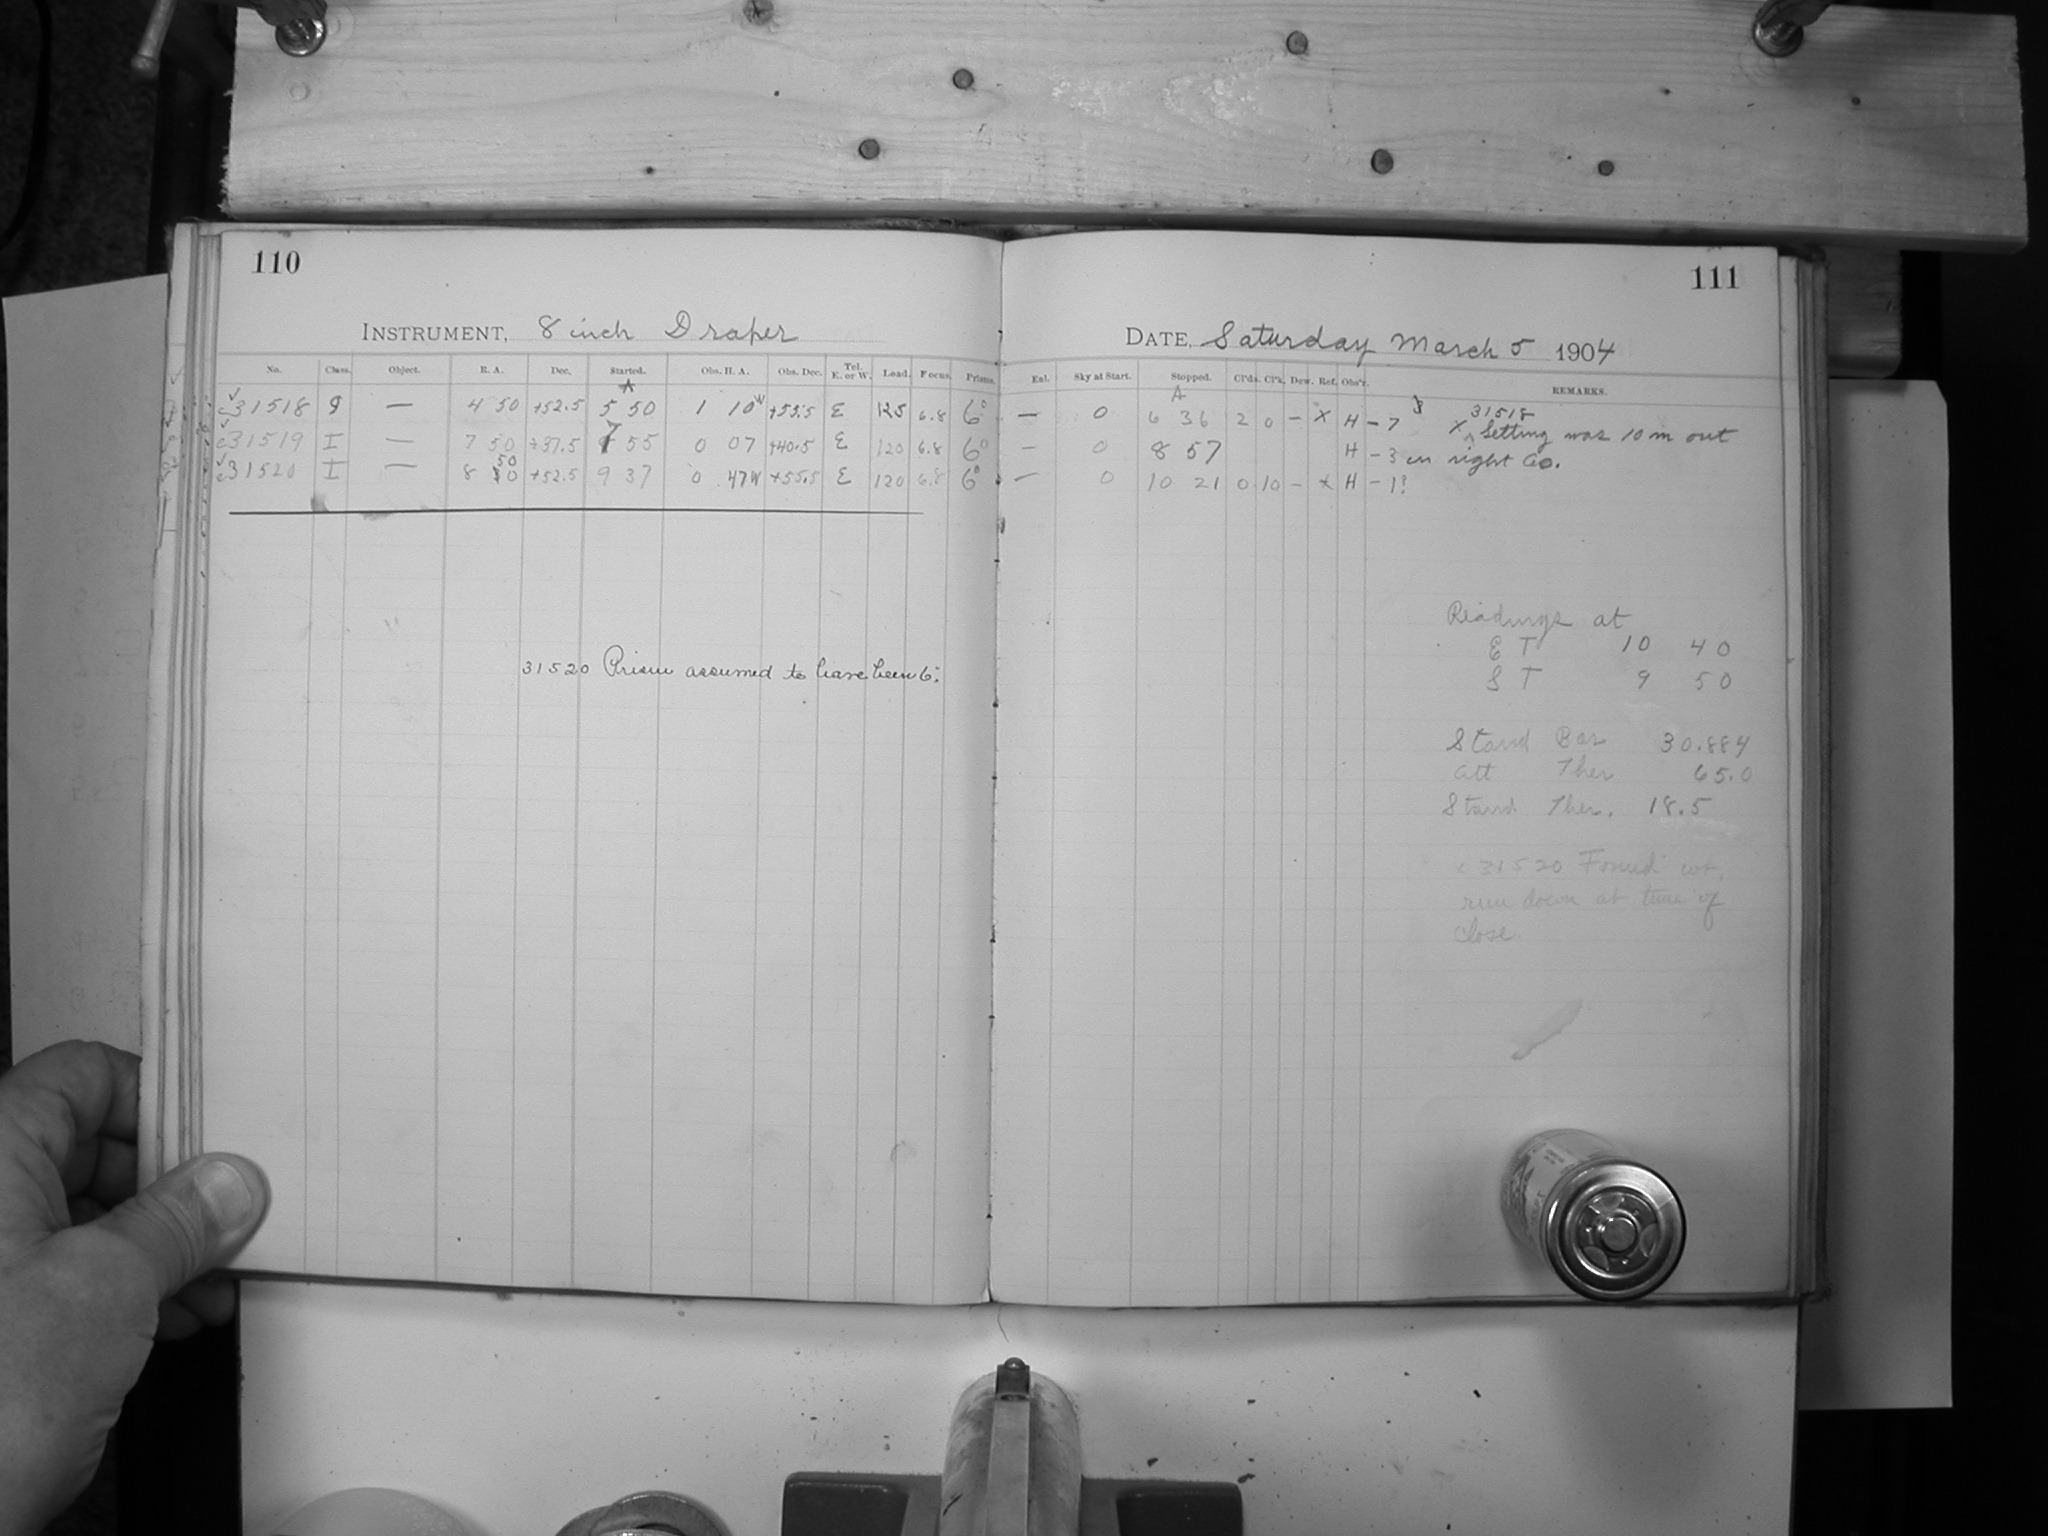 110
INSTRUMENT, 8 inch Draper
No. Class. Object. R. A. Dec. Started. Obs. H. A. Obs. Dec. Tel. E. or W. Load. Focus. Prisms.
A
c31518 — 4 50 +52.5 5 50 1 10 W +55.5 E 125 6.8 6°
c31519 I — 7 50 +37.5 7 55 0 07 +40.5 E 120 6.8 6°
c31520 I — 8 50 +52.5 9 37 0 47W +55.5 E 120 6.8 6°
31520 Prism assumed to have been 6°.
111
DATE, Saturday March 5 1904
Enl. Sky at Start. Stopped. Cl'ds. Cl'k. Dew. Ref. Obs'r. REMARKS.
A
— 0 6 36 2 0 — X H — 7 31518
X Setting was 10 m out
— 0 8 57 H — 3 in right as.
— 0 10 21 0 10 — x H — 1?
Readings at
E T 10 40
S T 9 50
Stand Bar 30.884
Att Ther 65.0
Stand Ther. 18.5
c 31520 Found wt.
run down at time of
close.